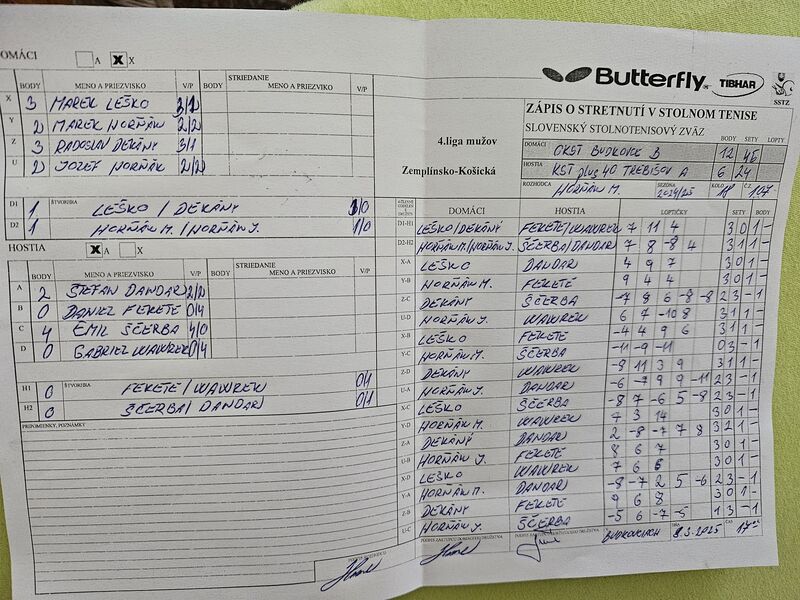 DOMÁCI A X X
BODY MENO A PRIEZVISKO V/P BODY STRIEDANIE MENO A PRIEZVISKO V/P
X 3 MAREK LEŠKO 3/1
Y 2 MAREK HORŇÁK 2/2
Z 3 RADOSLAV DEKÁNY 3/1
U 2 JOZEF HORŇÁK 2/2
D1 1 ŠTVORHRA LEŠKO / DEKÁNY 1/0
D2 1 HORŇÁK M. / HORŇÁK J. 1/0
HOSTIA X A X
BODY MENO A PRIEZVISKO V/P BODY STRIEDANIE MENO A PRIEZVISKO V/P
A 2 ŠTEFAN DANDÁR 2/2
B 0 DANIEL FEKETE 0/4
C 4 EMIL ŠČERBA 4/0
D 0 GABRIEL WAWREK 0/4
H1 0 ŠTVORHRA FEKETE / WAWREK 0/1
H2 0 ŠČERBA / DANDÁR 0/1
PRIPOMIENKY, POZNÁMKY
Butterfly TIBHAR SSTZ
ZÁPIS O STRETNUTÍ V STOLNOM TENISE
SLOVENSKÝ STOLNOTENISOVÝ ZVÄZ
4.liga mužov
Zemplínsko-Košická
BODY SETY LOPTY
DOMÁCI OKST BUDKOVCE B 12 45
HOSTIA KST plus 40 TREBIŠOV A 6 24
ROZHODCA HORŇÁK M. SEZÓNA 2024/25 KOLO 18 Č.Z. 107
DOMÁCI HOSTIA LOPTIČKY SETY BODY
D1-H1 LEŠKO/DEKÁNY FEKETE/WAWREK 7 11 4 3 0 1 -
D2-H2 HORŇÁK M./HORŇÁK J. ŠČERBA/DANDÁR 7 8 -8 4 3 1 1 -
X-A LEŠKO DANDÁR 4 9 7 3 0 1 -
Y-B HORŇÁK M. FEKETE 9 4 4 3 0 1 -
Z-C DEKÁNY ŠČERBA -7 8 6 -8 -8 2 3 - 1
U-D HORŇÁK J. WAWREK 6 7 -10 8 3 1 1 -
X-B LEŠKO FEKETE -4 4 9 6 3 1 1 -
Y-C HORŇÁK M. ŠČERBA -11 -9 -11 0 3 - 1
Z-D DEKÁNY WAWREK -8 11 3 9 3 1 1 -
U-A HORŇÁK J. DANDÁR -6 -7 9 9 -11 2 3 - 1
X-C LEŠKO ŠČERBA -8 7 -6 5 -8 2 3 - 1
Y-D HORŇÁK M. WAWREK 7 3 14 3 0 1 -
Z-A DEKÁNY DANDÁR 2 -8 -7 7 8 3 2 1 -
U-B HORŇÁK J. FEKETE 8 6 7 3 0 1 -
X-D LEŠKO WAWREK 7 6 6 3 0 1 -
Y-A HORŇÁK M. DANDÁR -8 -7 2 5 -6 2 3 - 1
Z-B DEKÁNY FEKETE 9 6 8 3 0 1 -
U-C HORŇÁK J. ŠČERBA -5 6 -7 -5 1 3 - 1
BUDKOVCIACH DŇA 8.3.2025 ČAS 17